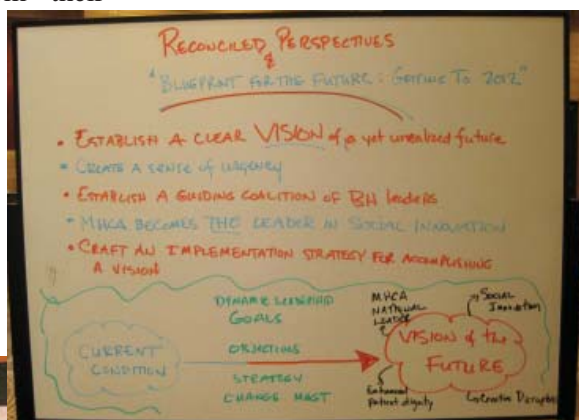 RECONCILED PERSPECTIVES
&
"BLUEPRINT FOR THE FUTURE: GETTING TO 2012"
• ESTABLISH A CLEAR VISION of a yet unrealized future
• CREATE A SENSE OF URGENCY
• ESTABLISH A GUIDING COALITION OF BH leaders
• MHCA BECOMES THE LEADER IN SOCIAL INNOVATION
• CRAFT AN IMPLEMENTATION STRATEGY FOR ACCOMPLISHING
A VISION
DYNAMIC LEADERSHIP
GOALS
OBJECTIONS
STRATEGY
CHANGE MGMT
CURRENT
CONDITION
MHCA
NATIONAL
LEADER
Social
Innovation
VISION of the
FUTURE
Enhanced
patient dignity